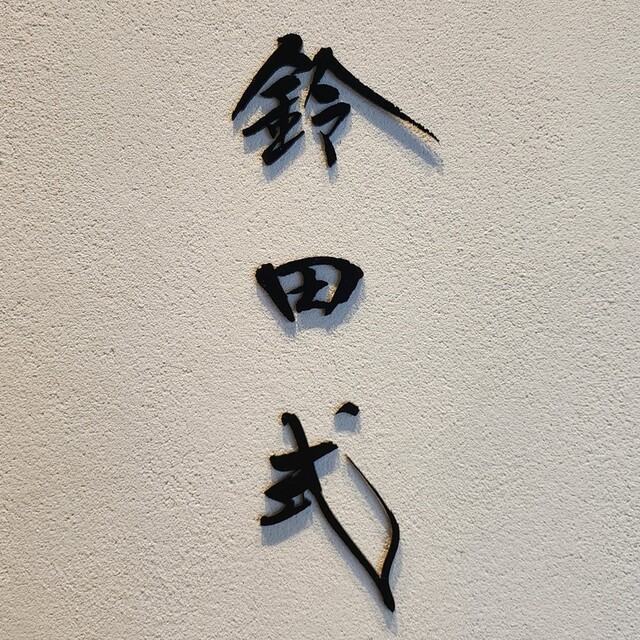 鈴田式